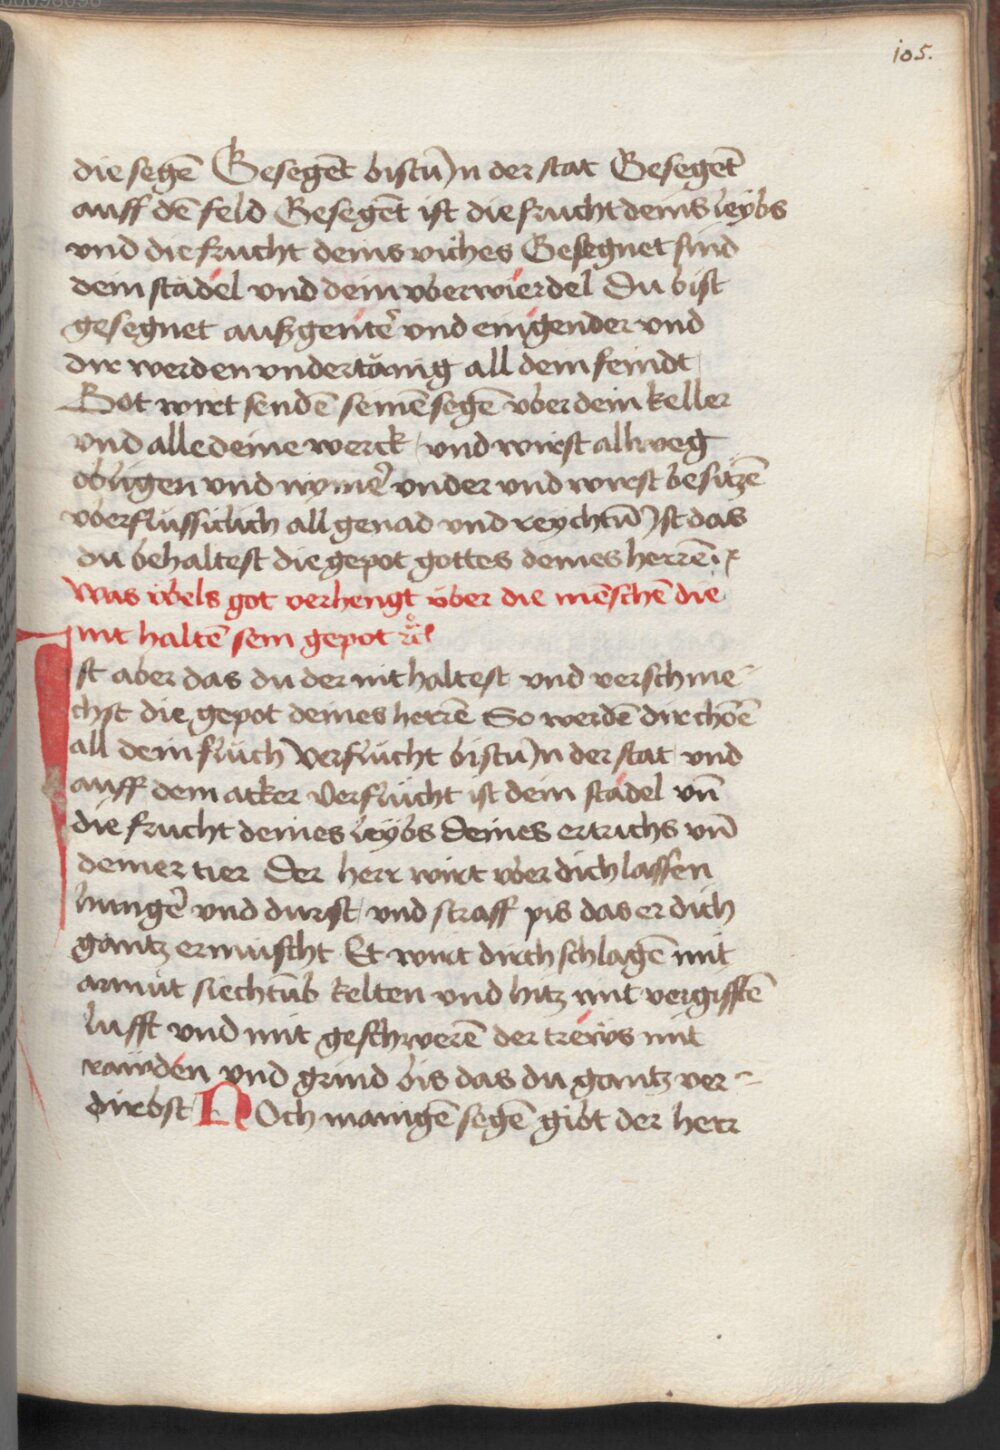 105.
die segē Gesegēt bistu In der stat Gesegēt
auff dē feld Gesegēt ist die frucht deins leybs
vnd die frucht deins viches Gesegnet sind
dein städel vnd dein vberwierdel Du bist
gesegnet auszgentē vnd eingender vnd
dir werden vndertänig all dein feindt
Got wirt sendē seinē segē vber dein keller
vnd alle deine werck / vnd wirst allweg
obligen vnd nymē vnder vnd wirst besitzē
vberflussiclich all genad vnd reychtū Ist das
du behaltest die gepot gottes deines herrē
Was übels got verhengt über die mēschē die
nit haltē sein gepot
Ist aber das du der nit haltest vnd verschme-
chst die gepot deines herrē So werdē dir chōē
all dein flüch Verflücht bistu In der stat vnd
auff dem acker Verflücht ist dein städel vn̄
die frucht deines leybs Deines ertrichs vn̄
deiner tier Der herr wirt vber dich lassen
hungē vnd durst / vnd straff pis das er dich
gantz ermischt Er wirt dich schlagē mit
armüt siechtūb kelten vnd hitz mit vergifftē
lufft vnd mit geschwerē der trews mit
räwden vnd grind bis das du gantz ver-
dirbst NOch manigē segē gibt der herr